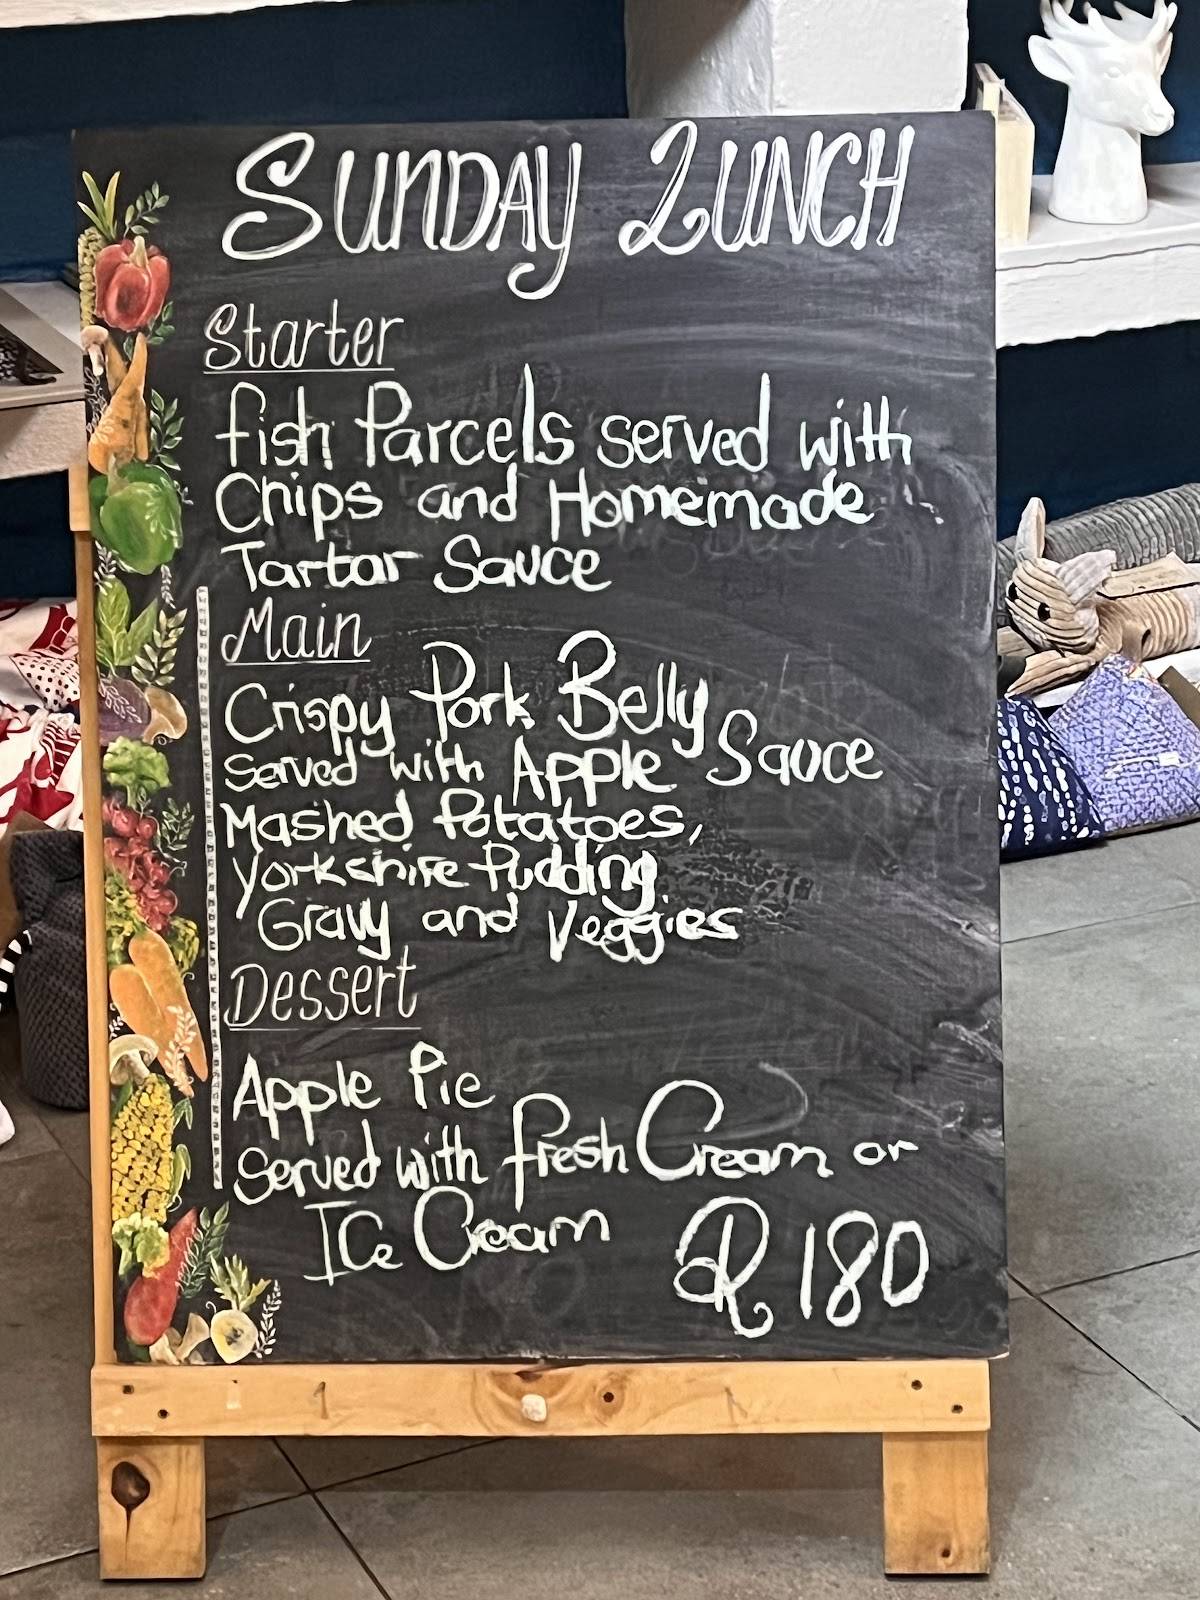 SUNDAY LUNCH
Starter
fish Parcels served with
Chips and Homemade
Tartar Sauce
Main
Crispy Pork Belly
Served with Apple Sauce
Mashed Potatoes,
Yorkshire Pudding
Gravy and Veggies
Dessert
Apple Pie
Served with fresh Cream or
Ice Cream R180